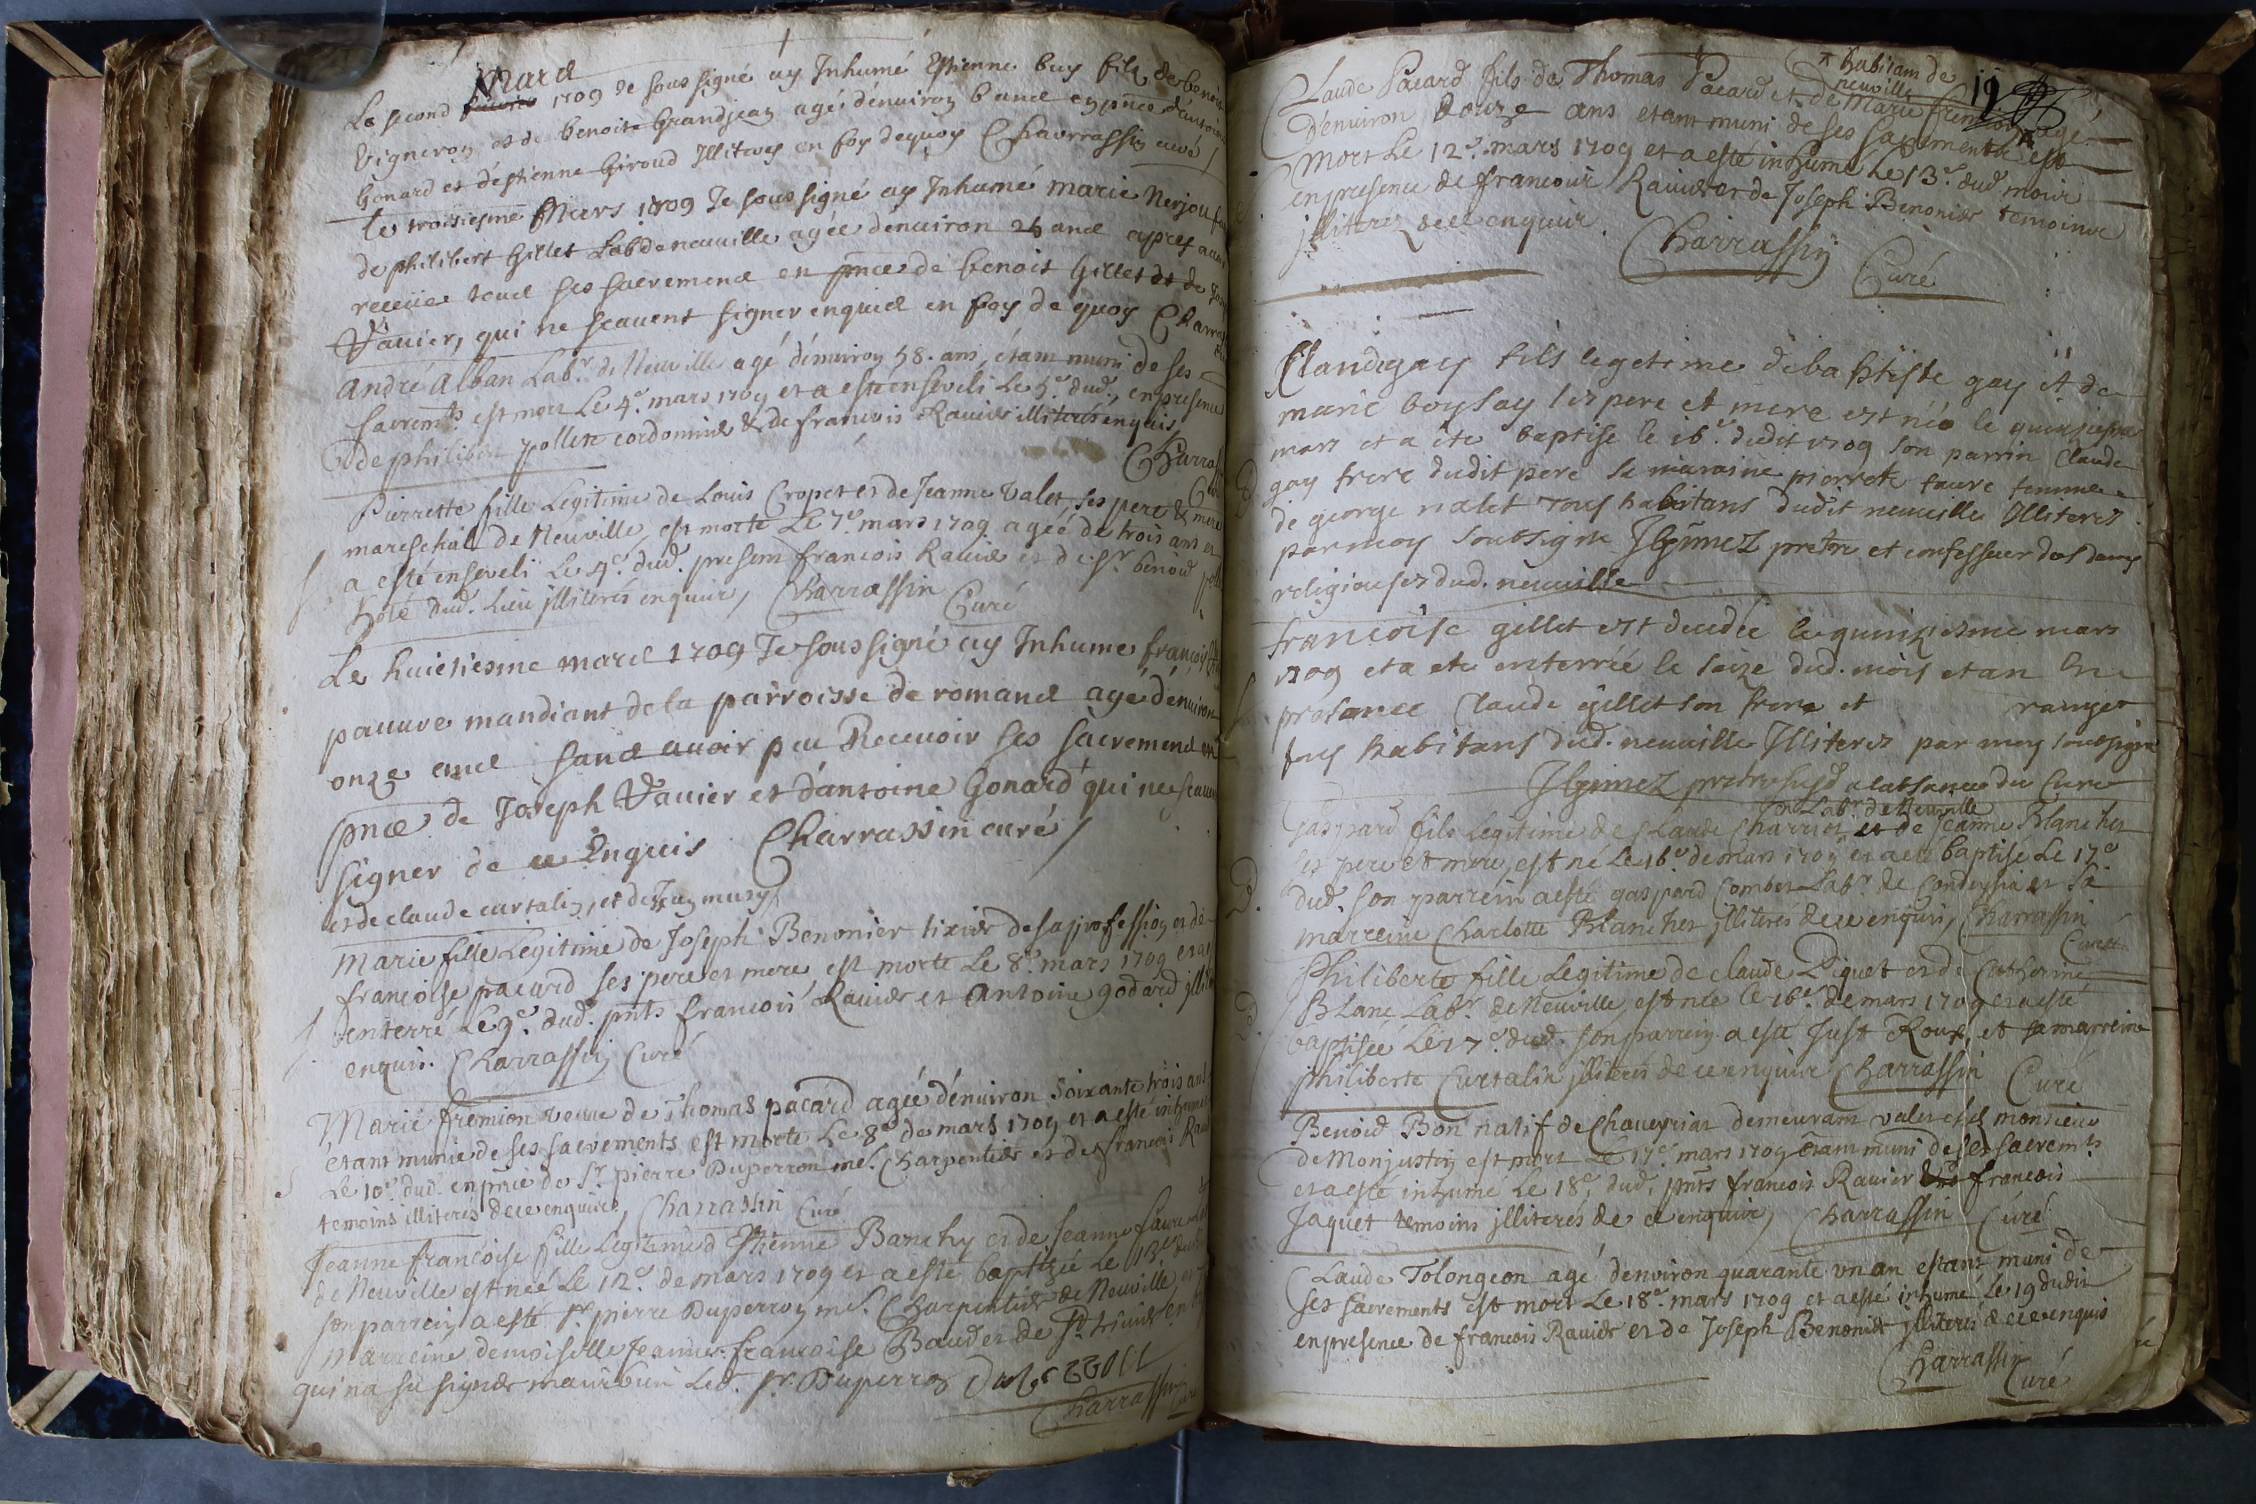 marcl
Le second 1709 Je soussigné ay Inhumé Estienne buy fils de benoit
Vigneron et de benoite Grandjean agé d'environ 6 ancl en pnce d'antoine
Gonard et d'estienne Giroud Illiterez en foy de quoy Charrassin curé
Le troisiesme Mars 1709 Je soussigné ay Inhumé marie Nerjou
de philibert Gillet Lab de neuville agée d'environ ancl apres avoir
receüe toucl ses sacremencl en pnce de benoit Gillet et de
Vavier, qui ne scavent signer enquicl en foy de quoy
andré Alban Labr. de Neuville agé d'environ 58. ans, étant muni de ses
sacremts. est mort Le 4e. mars 1709 et a esté enseveli Le 5e. dud., en presence
de philibert pollete cordonnier & de francois Ravier illiterés enquis
Pierrette fille Legitime de Louis Cropet et de Jeanne Valet, ses pere & mere
mareschal de Neuville, est morte Le 7e mars 1709 ageé de trois ans et
a esté enseveli Le 4e. dud. presens francois Ravier et de Sr. benoid
hote dud. Lieu illiterés enquis, Charrassin
Curé
Le huictiesme marcl 1709 Je soussigné ay Inhume françois
pauvre mandiant de la parroisse de romancl agé d'environ
onze ancl sancl avoir peu Recevoir ses sacremencl en
pnce de Joseph Vavier et d'antoine Gonard qui ne scavent
signer de ce Enquis Charrassin curé
et de claude curtalin, et de Jean mury
Marie fille Legitime de Joseph Benonier tixier de sa profession et de
francoise pacard ses pere et mere, est morte Le 8e. mars 1709 et a
enterré Le 9e. dud. pnts francois Ravier et Antoine godard
enquis. Charrassin Curé
Marie fremion veuve de Thomas pacard agée d'environ soixante trois ans
etant munie de ses sacrements est morte Le 8e de mars 1709 et a esté inhumée
Le 10e. dud. en pnce de Sr. pierre Duperron me. Charpentier et de francois
temoins illiterés de ce enquis, Charrassin Curé
Jeanne francoise fille Legitime d'Estienne Banchy et de Jeanne faure
de Neuville est née Le 12e. de mars 1709 et a esté baptizée Le 13e
son parrein a esté Sr. pierre Duperron me. Charpentier de Neuville,
marreine demoiselle Jeanne francoise Bauder de St. trivier
qui n'a su signer Led. Sr. Duperron
Charrassin
19
habitans de
neuville
Claude Pacard fils de Thomas Pacard et de Marie fremion agé
d'environ douze ans etant muni de ses sacrements est
mort Le 12e. mars 1709 et a esté inhumé Le 13e. dud. mois
en presence de francois Ravier et de Joseph Benonier temoins
illiterez de ce enquis.
Charrassin
Curé
Claude gay fils legetime de baptiste gay et de
marie boysay ses pere et mere est né le quinziesme
mars et a ete baptise le 16e. dudit 1709 son parrin Claude
gay frere dudit pere sa maraine pierrete faure femme
de george nalet tous habitans dudit neuville Illiterez
par moy soubsigné Jlgimez pretre et confesseur des dames
religieuses dud. neuville
francoise gillet est decedée le quinziesme mars
1709 et a ete enterrée le seize dud. mois et an En
presance Claude gillet son frere et ranger
tous habitans dud. neuville Illiterez par moy soubsigné
Jlgimez pretre susd a labsance du Curé
Labr. de Neuville
Gaspard fils Legitime de Claude Charvet et de Jeanne Blanchet
ses pere et mere, est né Le 16e de mars 1709 et a esté baptisé Le 17e
dud. son parrein a esté gaspard Combet Labr. de Condeyssia et sa
marreine Charlotte Blanchet illiterés de ce enquis, Charrassin
Curé
Philiberte fille Legitime de claude Piquet et de Catherine
Blanc Labr. de Neuville, est née le 16e. de mars 1709 et a esté
baptisée Le 17e. dud. son parrein a esté Just Roux, et sa marreine
philiberte Curtalin illiterés de ce enquis Charrassin Curé
Benoid Bon natif de Chaveyriat demeurant valet chez monsieur
de Monjustin est mort Le 17e. mars 1709 étant muni de ses sacremts
et a esté inhumé Le 18e. dud. pnts francois Ravier francois
Jaquet temoins illiterés de ce enquis, Charrassin Curé
Claude Tolongeon agé d'environ quarante un an estant muni de
ses sacrements est mort Le 18e. mars 1709 et a esté inhumé Le 19 dudit
en presence de francois Ravier et de Joseph Benonier illiterés de ce enquis
Charrassin
Curé